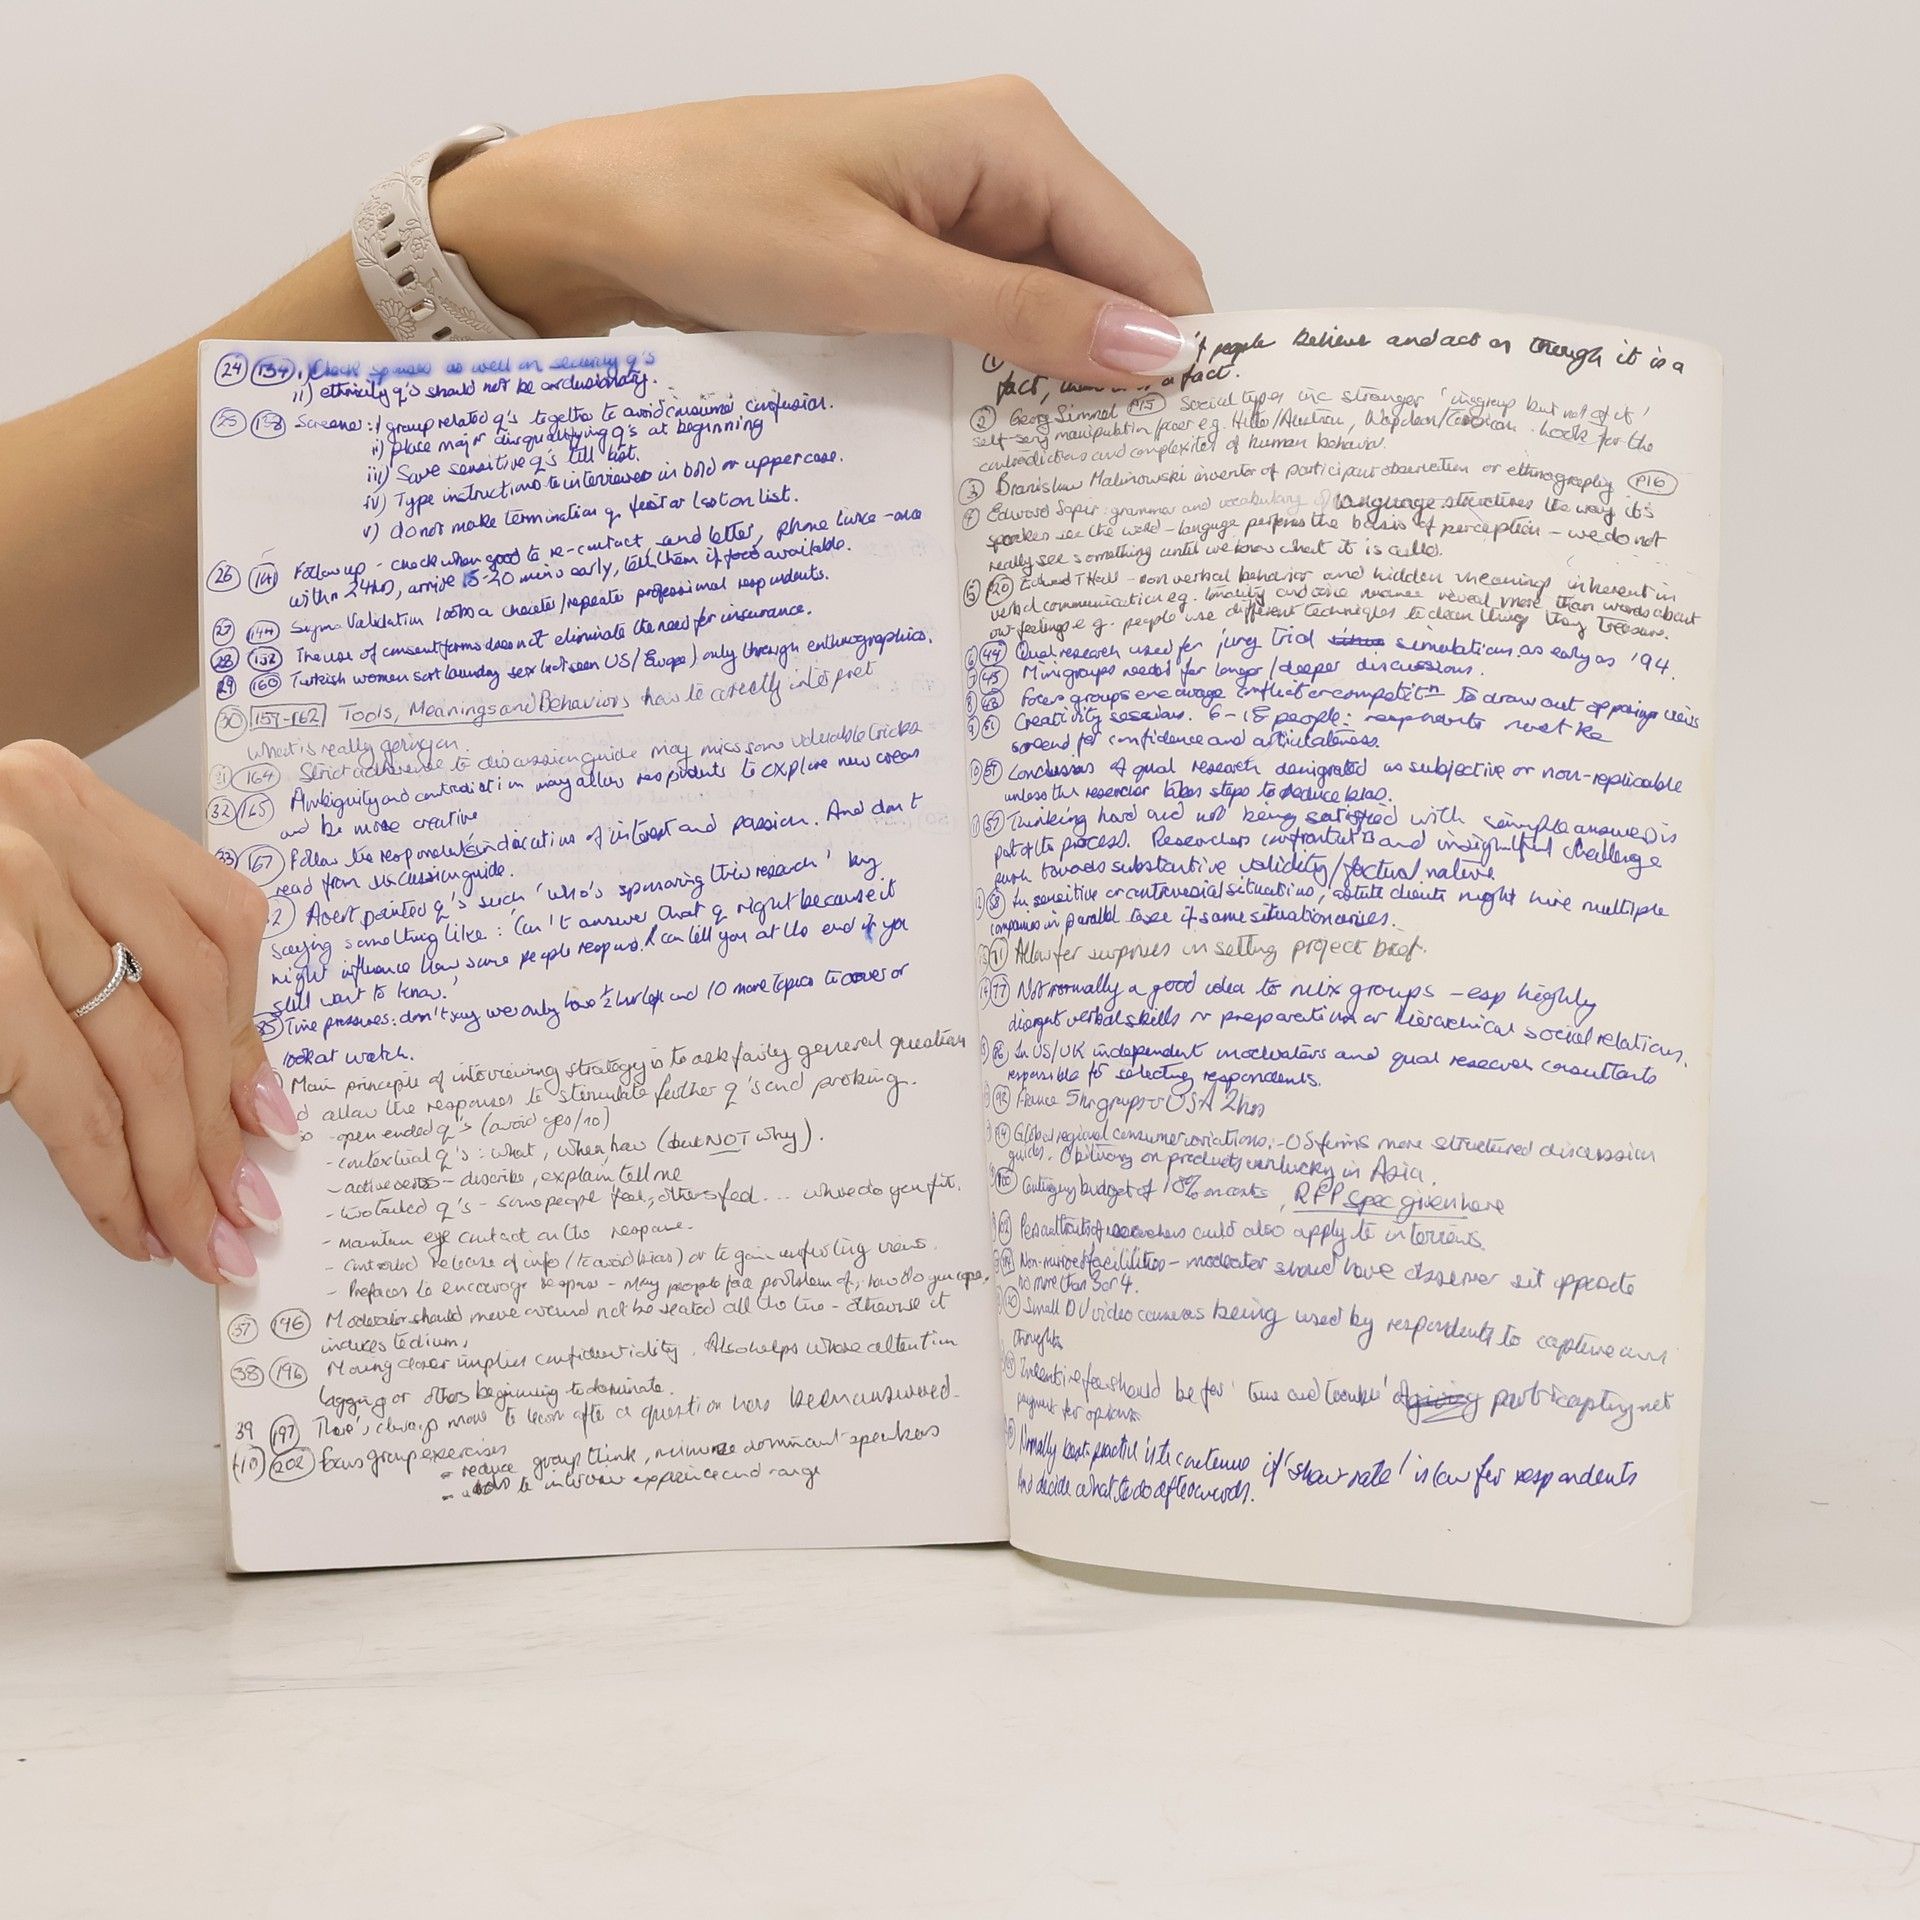 24 134 i) Check spouses as well on security q's
ii) ethnicity q's should not be exclusionary.
25 138 Screener: i) group related q's together to avoid consumer confusion.
ii) place major disqualifying q's at beginning
iii) Save sensitive q's till last.
iv) Type instructions to interviewer in bold or uppercase.
v) do not make termination q first or last on list.
26 141 Follow up - check when good to re-contact, send letter, phone twice - once
within 24hrs, arrive 15-20 mins early, tell them if food available.
27 144 Sigma Validation looks a cheater/repeater professional respondents.
28 152 The use of consent forms does not eliminate the need for insurance.
29 160 Turkish women sort laundry sex (not seen US/Europe) only through enthnographics.
30 159-162 Tools, Meanings and Behaviors how to correctly interpret
what is really going on.
31 164 Strict adherence to discussion guide may miss some valuable tricks
32 165 Ambiguity and contradiction may allow respondents to explore new areas
and be more creative
33 167 Follow the respondents indication of interest and passion. And don't
read from discussion guide.
2 Avert pointed q's such 'who's sponsoring this research' by
saying something like: 'Can't answer that q right because it
might influence how some people respond. I can tell you at the end if you
still want to know.'
35 Time pressures: don't say we only have ½ hr left and 10 more topics to cover or
look at watch.
Main principle of interviewing strategy is to ask fairly general question
allow the responses to stimulate further q's and probing.
- open ended q's (avoid yes/no)
- contextual q's: what, when, how (but NOT why).
- active verbs - describe, explain, tell me
- two tailed q's - some people feel, others feel ... where do you fit.
- maintain eye contact on the response.
- controlled release of info (to avoid bias) or to gain conflicting views.
- Prefaces to encourage response - many people face problem of, how do you cope.
37 196 Moderator should move around not be seated all the time - otherwise it
induces tedium.
38 196 Moving closer implies confidentiality. Also helps where attention
lagging or others beginning to dominate.
39 197 There's always more to learn after a question has been answered.
40 202 focus group exercises
- reduce group think, minimize dominant speakers
- adds to interview experience and range
1 if people believe and act as though it is a
fact, a fact.
2 Georg Simmel P15 Social types inc stranger 'in group but not of it'
self-serv manipulation power e.g. Hitler/Austrian, Napoleon/Corsican. Look for the
contradictions and complexities of human behavior.
3 Branislaw Malinowski inventor of participant observation or ethnography P16
4 Edward Sapir: grammar and vocabulary of language structures the way it's
speakers see the world - language performs the basis of perception - we do not
really see something until we know what it is called.
5 20 Edward T Hall - non verbal behavior and hidden meanings inherent in
verbal communication e.g. tonality and voice nuance reveal more than words about
our feelings e.g. people use different techniques to clean things they treasure.
6 44 Qual research used for jury trial simulations as early as '94.
7 45 Mini groups needed for longer/deeper discussions.
8 48 Focus groups encourage conflict or competitn to draw out opposing views
9 51 Creativity sessions. 6-18 people: respondents must be
screened for confidence and articulateness.
10 57 Conclusions of qual research denigrated as subjective or non-replicable
unless the researcher takes steps to reduce bias.
57 Thinking hard and not being satisfied with simple answers is
part of the process. Researchers confrontatn and insightful challenge
push towards substantive validity/factual nature
58 In sensitive or controversial situations, astute clients might hire multiple
companies in parallel to see if same situation arises.
71 Allow for surprises in setting project brief.
14 77 Not normally a good idea to mix groups - esp highly
divergent verbal skills or preparation or hierarchical social relations.
86 In US/UK independent moderators and qual research consultants
responsible for selecting respondents.
92 France 5hr groups v USA 2hrs
94 Global regional consumer variations. - US firms more structured discussion
guides. Obituary on products unlucky in Asia.
100 Contingency budget of 10% on costs, RFP spec given here
102 Personal traits of researchers could also apply to interviews.
Non-mirrored facilities - moderator should have observer sit opposite
no more than 3 or 4.
Small DV video cameras being used by respondents to capture own
thoughts
Incentive fee should be for 'time and trouble' of participating not
payment for opinions
Normally best practice is to continue if 'show rate' is low for respondents
and decide what to do afterwards.